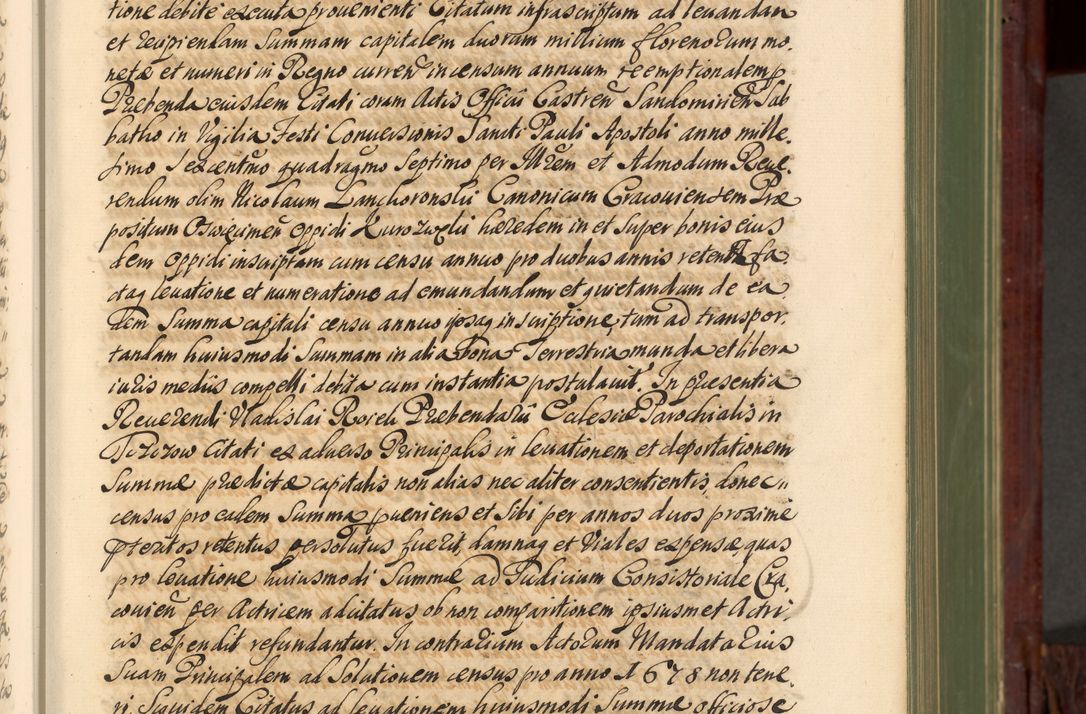 tione debite executa provenienti Citatum infrascriptum ad levandam
et recipiendam Summam capitalem duorum millium florenorum mo.
netæ et numeri in Regno curren̄ in censum annuum reemptionalem p
Præbenda eiusdem Citati coram Actis Officii Castren̄ Sandomirien̄ Sab
batho in Vigilia Festi Conversionis Sancti Pauli Apostoli anno mille.
simo sexcentmo quadragmo Septimo per Illrem et Admodum Reve.
rendum olim Nicolaum Lanckoronskii Canonicum Cracoviensem Præ
positum Oswiecimen̄ oppidi Kurozwękii hæredem in et super bonis eius
dem oppidi inscriptam cum censu annuo pro duobus annis retento fa
ctaq levatione et numeratione ad emundandum et quietandum de ea
dem Summa capitali censu annuo ipsaq inscriptione, tum ad transpor.
tandam huiusmodi Summam in alia bona Terrestria munda et libera
iuris mediis compelli debita cum instantia postulavit. In præsentia
Reverendi Vladislai Præbendarii Ecclesiæ Parochialis in
Citati ex adverso Principalis in levationem et deportationem
Summæ prædictæ capitalis non alias nec aliter consentientis, donec„
census pro eadem Summa pveniens et sibi per annos duos proxime
pteritos retentus persolutus fuerit, damnaq et Viales expensæ, quas
pro levatione huiusmodi Summæ ad Judicium Consistoriale Cra,
covien̄ per Actricem adcitatus ob non comparitionem ipsiusmet Actri,
cis expendit refundantur. In contrarium Actorum Mandatarius
Suam Principalem ad Solutionem census pro anno 1678 non tene,
ri, Siquidem Citatus ad levationem huiusmodi Summæ officiose